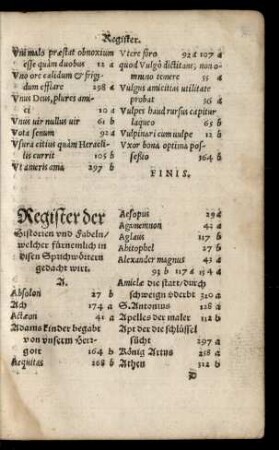 Register.
Vni malo præstat obnoxium
esse quàm duobus 12 a
Vno ore calidum & frigidum
efflare 238 a
Vnus Deus, plures amici
10 a
Vnus uir nullus uir 61 b
Vota senum 92 a
Vsura citius quàm Heracliti
currit 105 b
Vt ameris ama 297 b
Vtere foro 92 a 107 a
quod Vulgò dictitant, non omnino
temere 55 a
Vulgus amicitias utilitate
probat 16 a
Vulpes haud rursus capitur
laqueo 65 b
Vulpinari cum uulpe 12 b
Vxor bona optima possessio
164 b
FINIS.
Register der
Historien vnd Fabeln/
welcher fürnemlich in
disen Sprichwörtern
gedacht wirt.
A.
Absolon 27 b
Ach 174 a
Actæon 41 a
Adams kinder begabt
von vnserm Herrgott
164 b
Aequitas 168 b
Aesopus 29 a
Agamemnon 41 a
Aglaus 117 b
Ahitophel 27 b
Alexander magnus 43 a
93 b 117 a 134 a
Amiclæ die statt/durch
schweign vderbt 320 a
S. Antonius 118 a
Apelles der maler 112 b
Apt der die schlüssel
sücht 297 a
König Artus 218 a
Athen 312 a